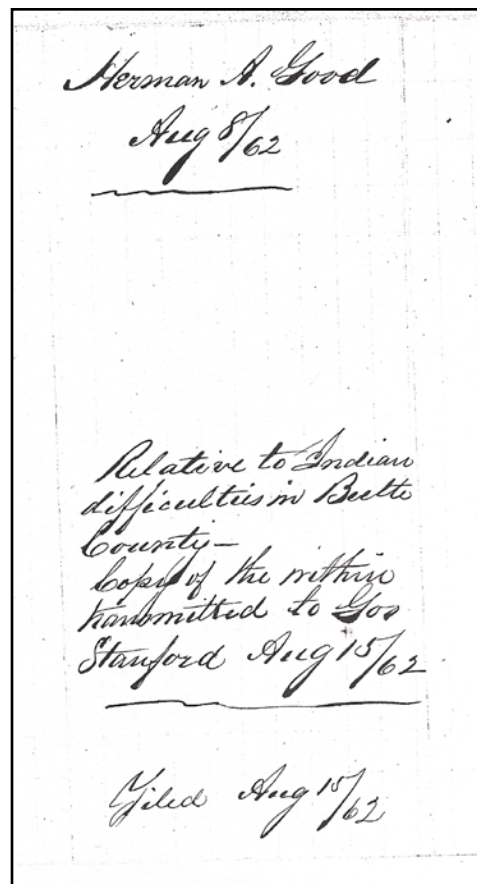 Herman A. Good
Aug 8/62
Relative to Indian
difficulties in Butte
County—
Copy of the within
transmitted to Gov
Stanford Aug 15/62
Filed Aug 15/62